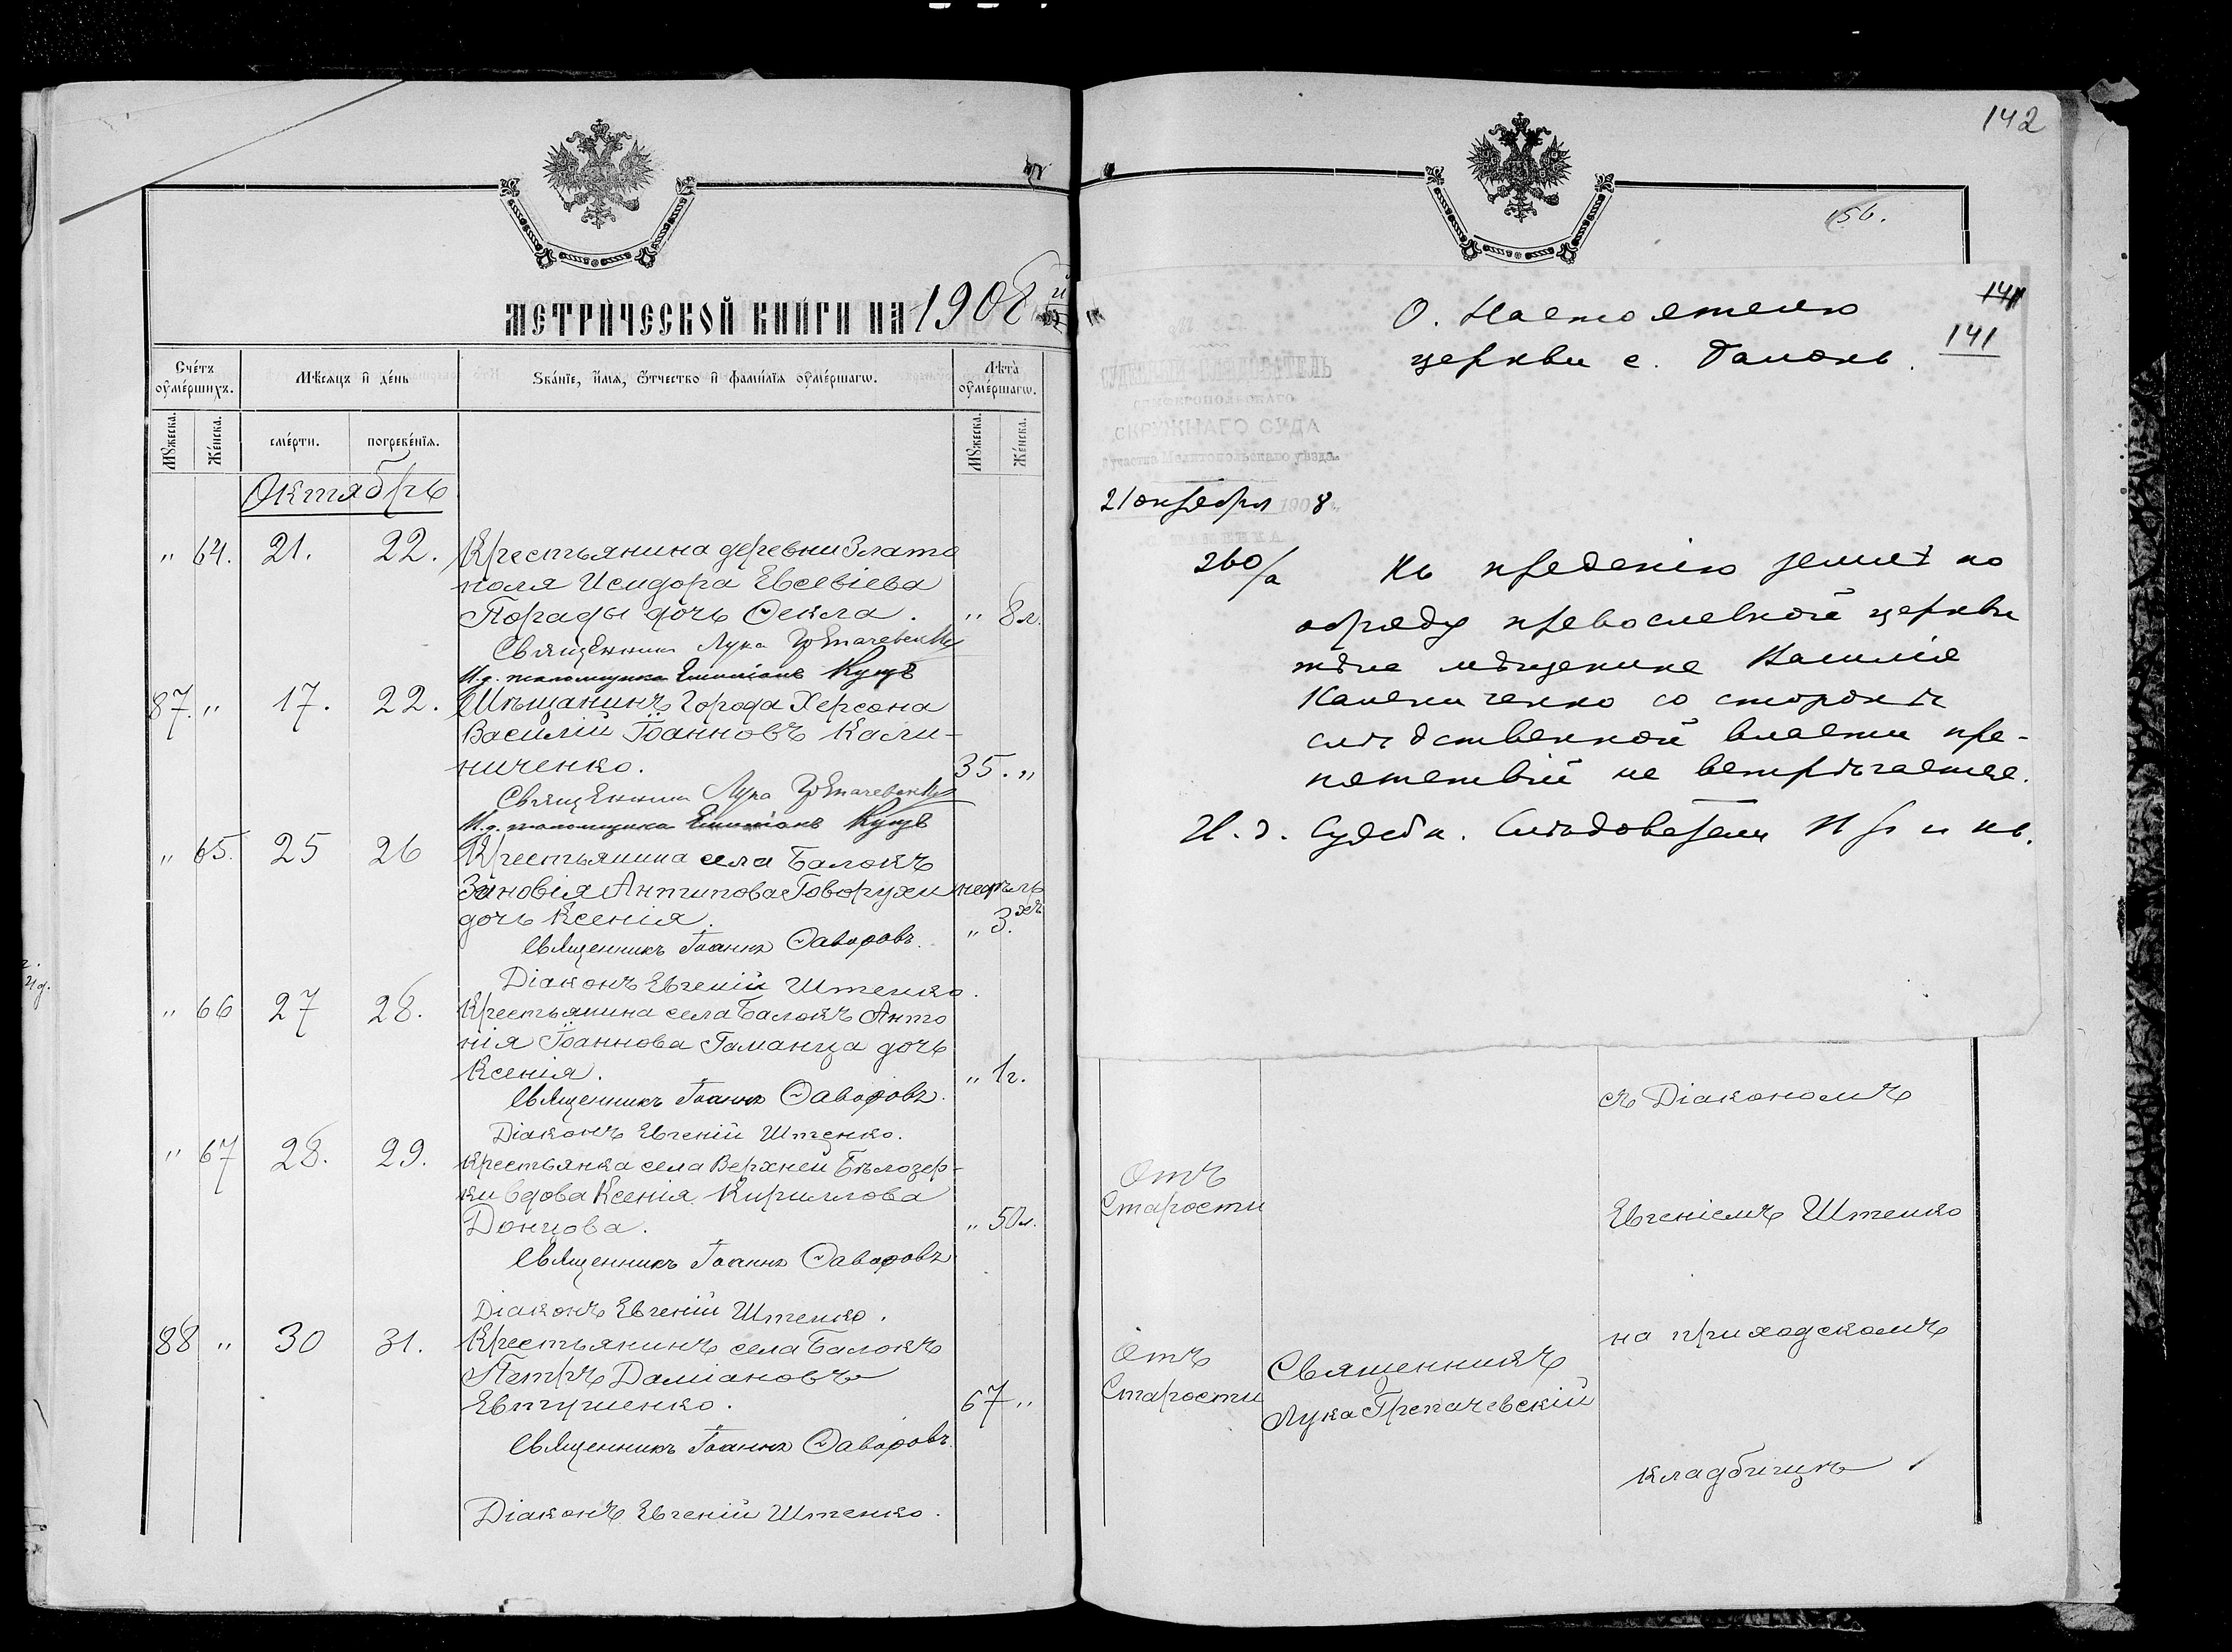 МЕТРИЧЕСКОЙ КНИГИ НА 1908 й
Счетъ оумершихъ.
Мѣсяцъ и день
Званіе, имя, ѿтчество и фамилія оумершагѡ.
Лѣта оумершагѡ.
Мꙋжеска.
Женска.
смерти.
погребенія.
Мꙋжеска.
Женска.
Октябрь
" 64. 21. 22. Крестьянина деревни Злато
поля Исидора Евсевіева
Порады дочь Ѳекла. " 8 л.
Священникъ Лука
И. д. псаломщика Емиліанъ Куцъ
87. " 17. 22. Мѣщанинъ города Херсона
Василій Іоанновъ Кали-
ниченко. 35. "
Священникъ Лука
И. д. псаломщика Емиліанъ Куцъ
" 65. 25 26 Крестьянина села Балокъ
Зиновія Антипова Говорухи
дочь Ксенія. " 3.
Священникъ Іоаннъ Ѳаворовъ.
Діаконъ Евгеній Штенко.
" 66 27 28. Крестьянина села Балокъ Анто
нія Іоаннова Гаманца дочь
Ксенія. " 1 г.
Священникъ Іоаннъ Ѳаворовъ.
Діаконъ Евгеній Штенко.
" 67 28. 29. Крестьянка села Верхней Бѣлозер-
ки вдова Ксенія Кириллова
Донцова. " 50 л.
Священникъ Іоаннъ Ѳаворовъ
Діаконъ Евгеній Штенко.
88 " 30 31. Крестьянинъ села Балокъ
Петръ Даміановъ
Евтушенко. 67 "
Священникъ Іоаннъ Ѳаворовъ.
Діаконъ Евгеній Штенко.
142
156.
141
141
О. Настоятелю
церкви с. Балокъ.
СУДЕБНЫЙ СЛѢДОВАТЕЛЬ
СИМФЕРОПОЛЬСКАГО
ОКРУЖНАГО СУДА
участка Мелитопольскаго уѣзда.
21 октября 1908
260/а
Къ преданію землѣ по
обряду православной церкви
тѣла мѣщанина Василія
Калениченко со стороны
слѣдственной власти пре-
пятствій не встрѣчается.
И. д. Судебн. Слѣдователя
съ Діакономъ
Отъ
Старости
Евгеніемъ Штенко
на приходскомъ
Отъ
Старости
Священникъ
Лука Трепачевскій
кладбищѣ